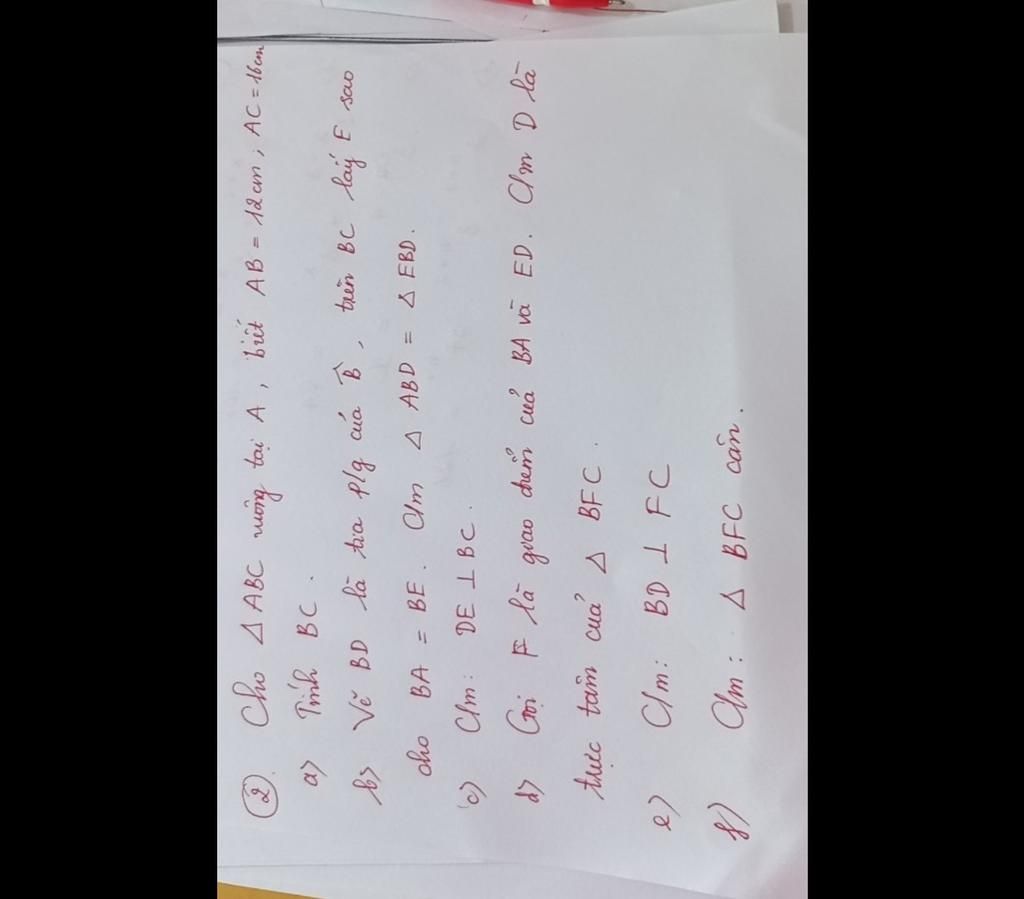 ② Cho △ ABC vuông tại A, biết AB = 12 cm; AC = 16 cm
a) Tính BC.
b) Vẽ BD là tia p/g của B̂, trên BC lấy E sao
cho BA = BE. C/m △ ABD = △ EBD.
c) C/m: DE ⊥ BC.
d) Gọi F là giao điểm cuả BA và ED. C/m D là
trực tâm cuả △ BFC.
e) C/m: BD ⊥ FC
f) C/m: △ BFC cân.